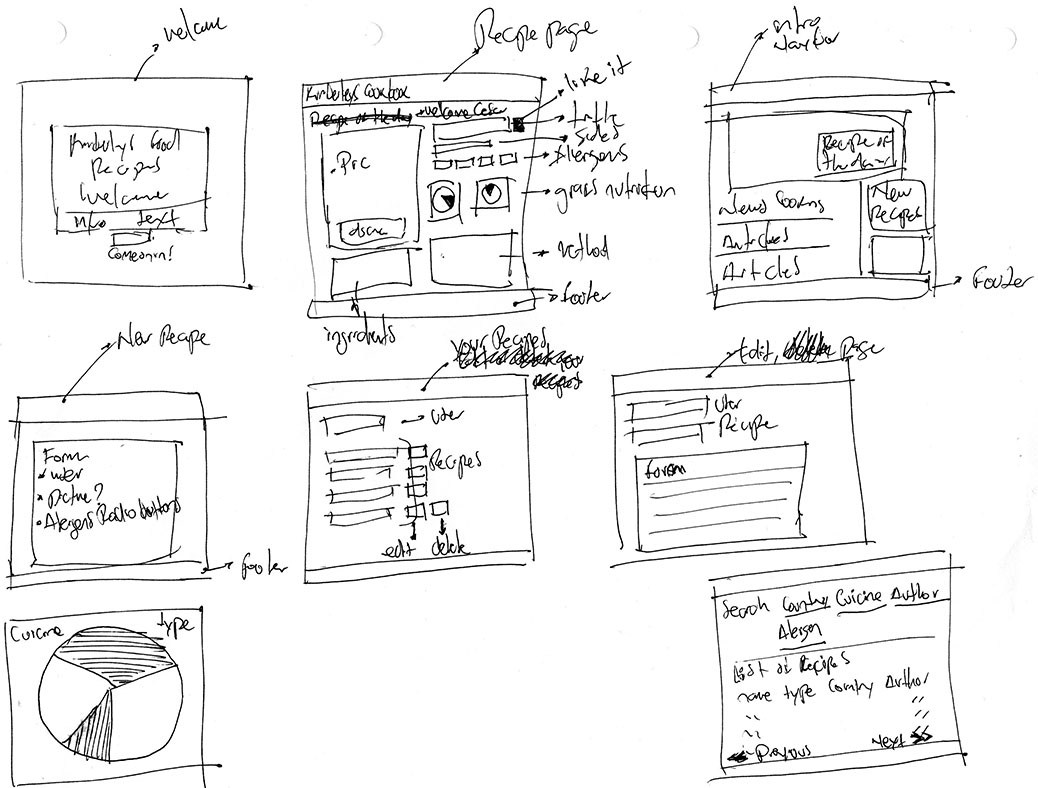 Welcome
Kimberleys Good
Recipes
Welcome
Intro text
Come on in!
Recipe page
Kimberleys Cookbook
welcome User
Pic
like it
title
Allergens
graphs nutrition
Method
footer
ingredients
intro
Recipe of
the day
New
Recipes
Articles
Articles
Footer
New Recipe
Form
• user
• picture?
• Alergens Radio buttons
footer
your Recipes
User
Recipes
edit delete
Edit, Page
User
Recipe
Form
Cuisine type
Search Country Cuisine Author
Alergen
List of Recipes
name type Country Author
" "
" "
Previous Next